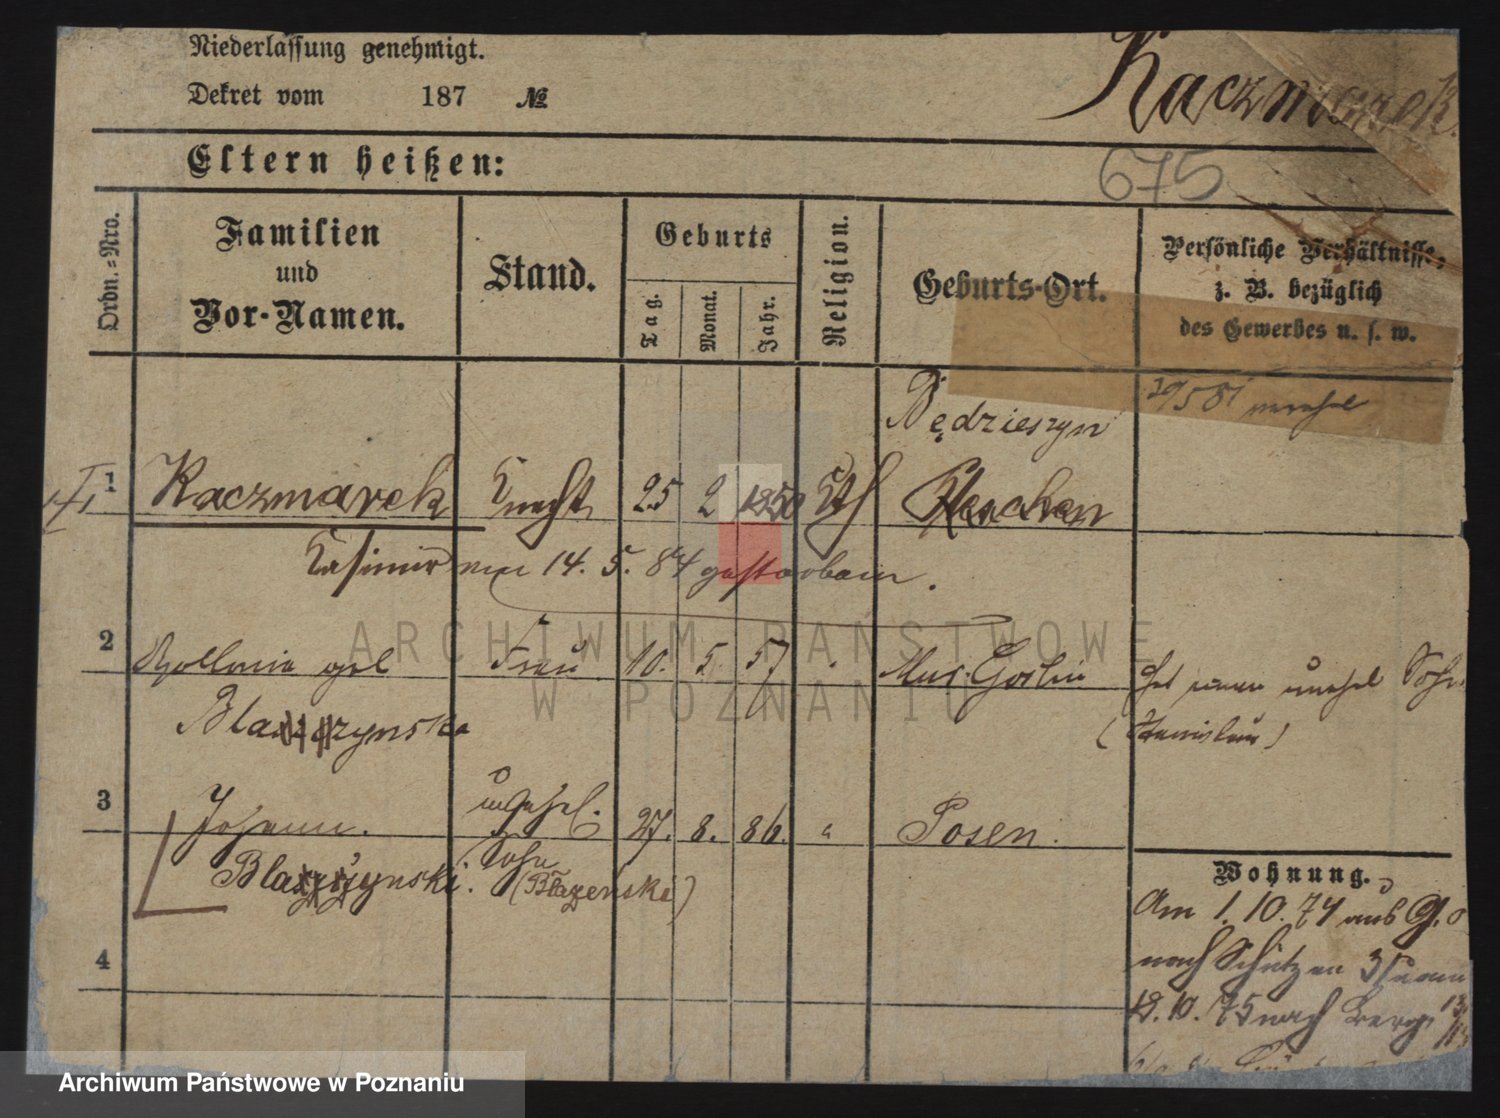 Niederlassung genehmigt.
Dekret vom 187 №
Kaczmarek
675
Eltern heißen:
Ordn.-Nro.
Familien
und
Vor-Namen.
Stand.
Geburts
Tag.
Monat.
Jahr.
Religion.
Geburts-Ort.
Persönliche Verhältnisse,
z. B. bezüglich
des Gewerbes u. s. w.
Będzieszyn
1 Kaczmarek Knecht 25 2 1850 Kth
Kasimir am 14. 5. 84 gestorben.
2 Apollonia geb Frau 10. 5. 57 " Mur. Goslin
Hat einen unehel Sohn
(Stanislaus)
3 Johann. unehel. 27. 8. 86. " Posen.
Sohn
(Błażeński)
4
Wohnung.
Am 1. 10. 74 aus
nach Schützen
12. 10. 75 nach Berg
ARCHIWUM PAŃSTWOWE
W POZNANIU
Archiwum Państwowe w Poznaniu